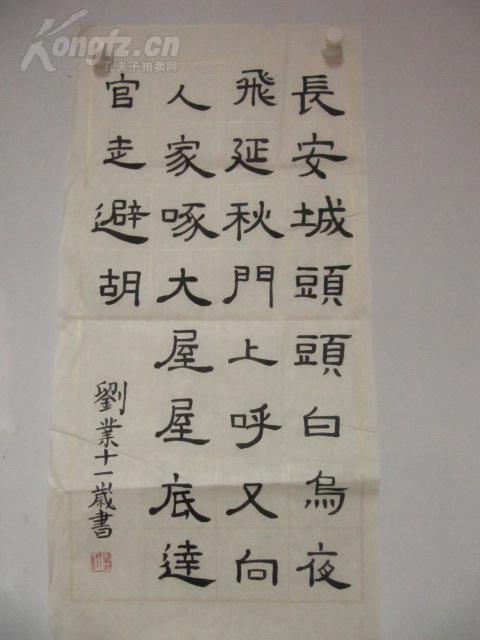 長安城頭頭白烏夜
飛延秋門上呼又向
人家啄大屋屋底達
官走避胡
劉業十一歲書
Kongfz.cn
孔夫子拍卖网